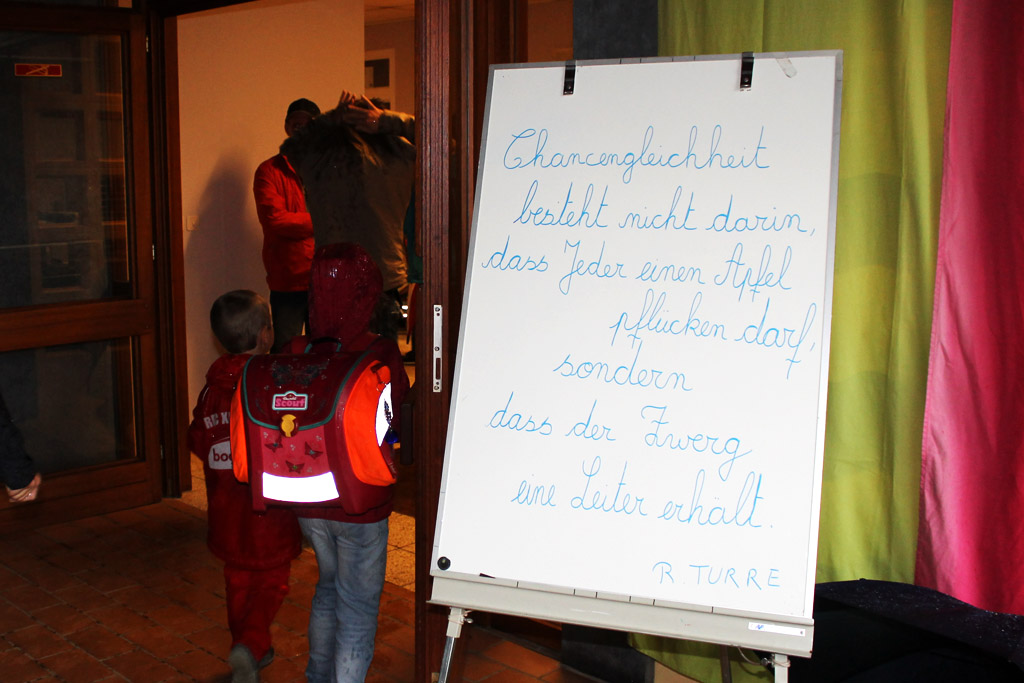 Chancengleichheit
besteht nicht darin,
dass Jeder einen Apfel
pflücken darf,
sondern
dass der Zwerg
eine Leiter erhält.
R. TURRE
Scout